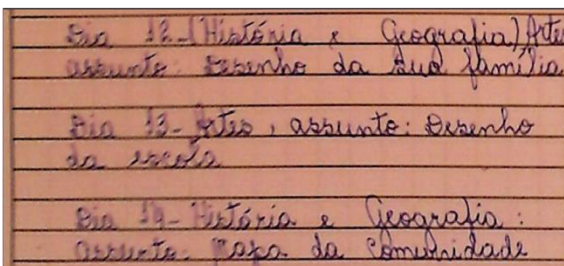 Dia 12-(História e Geografia) Artes
assunto: Desenho da sua família
Dia 13- Artes, assunto: Desenho
da escola
Dia 14- História e Geografia:
assunto: Mapa da comunidade